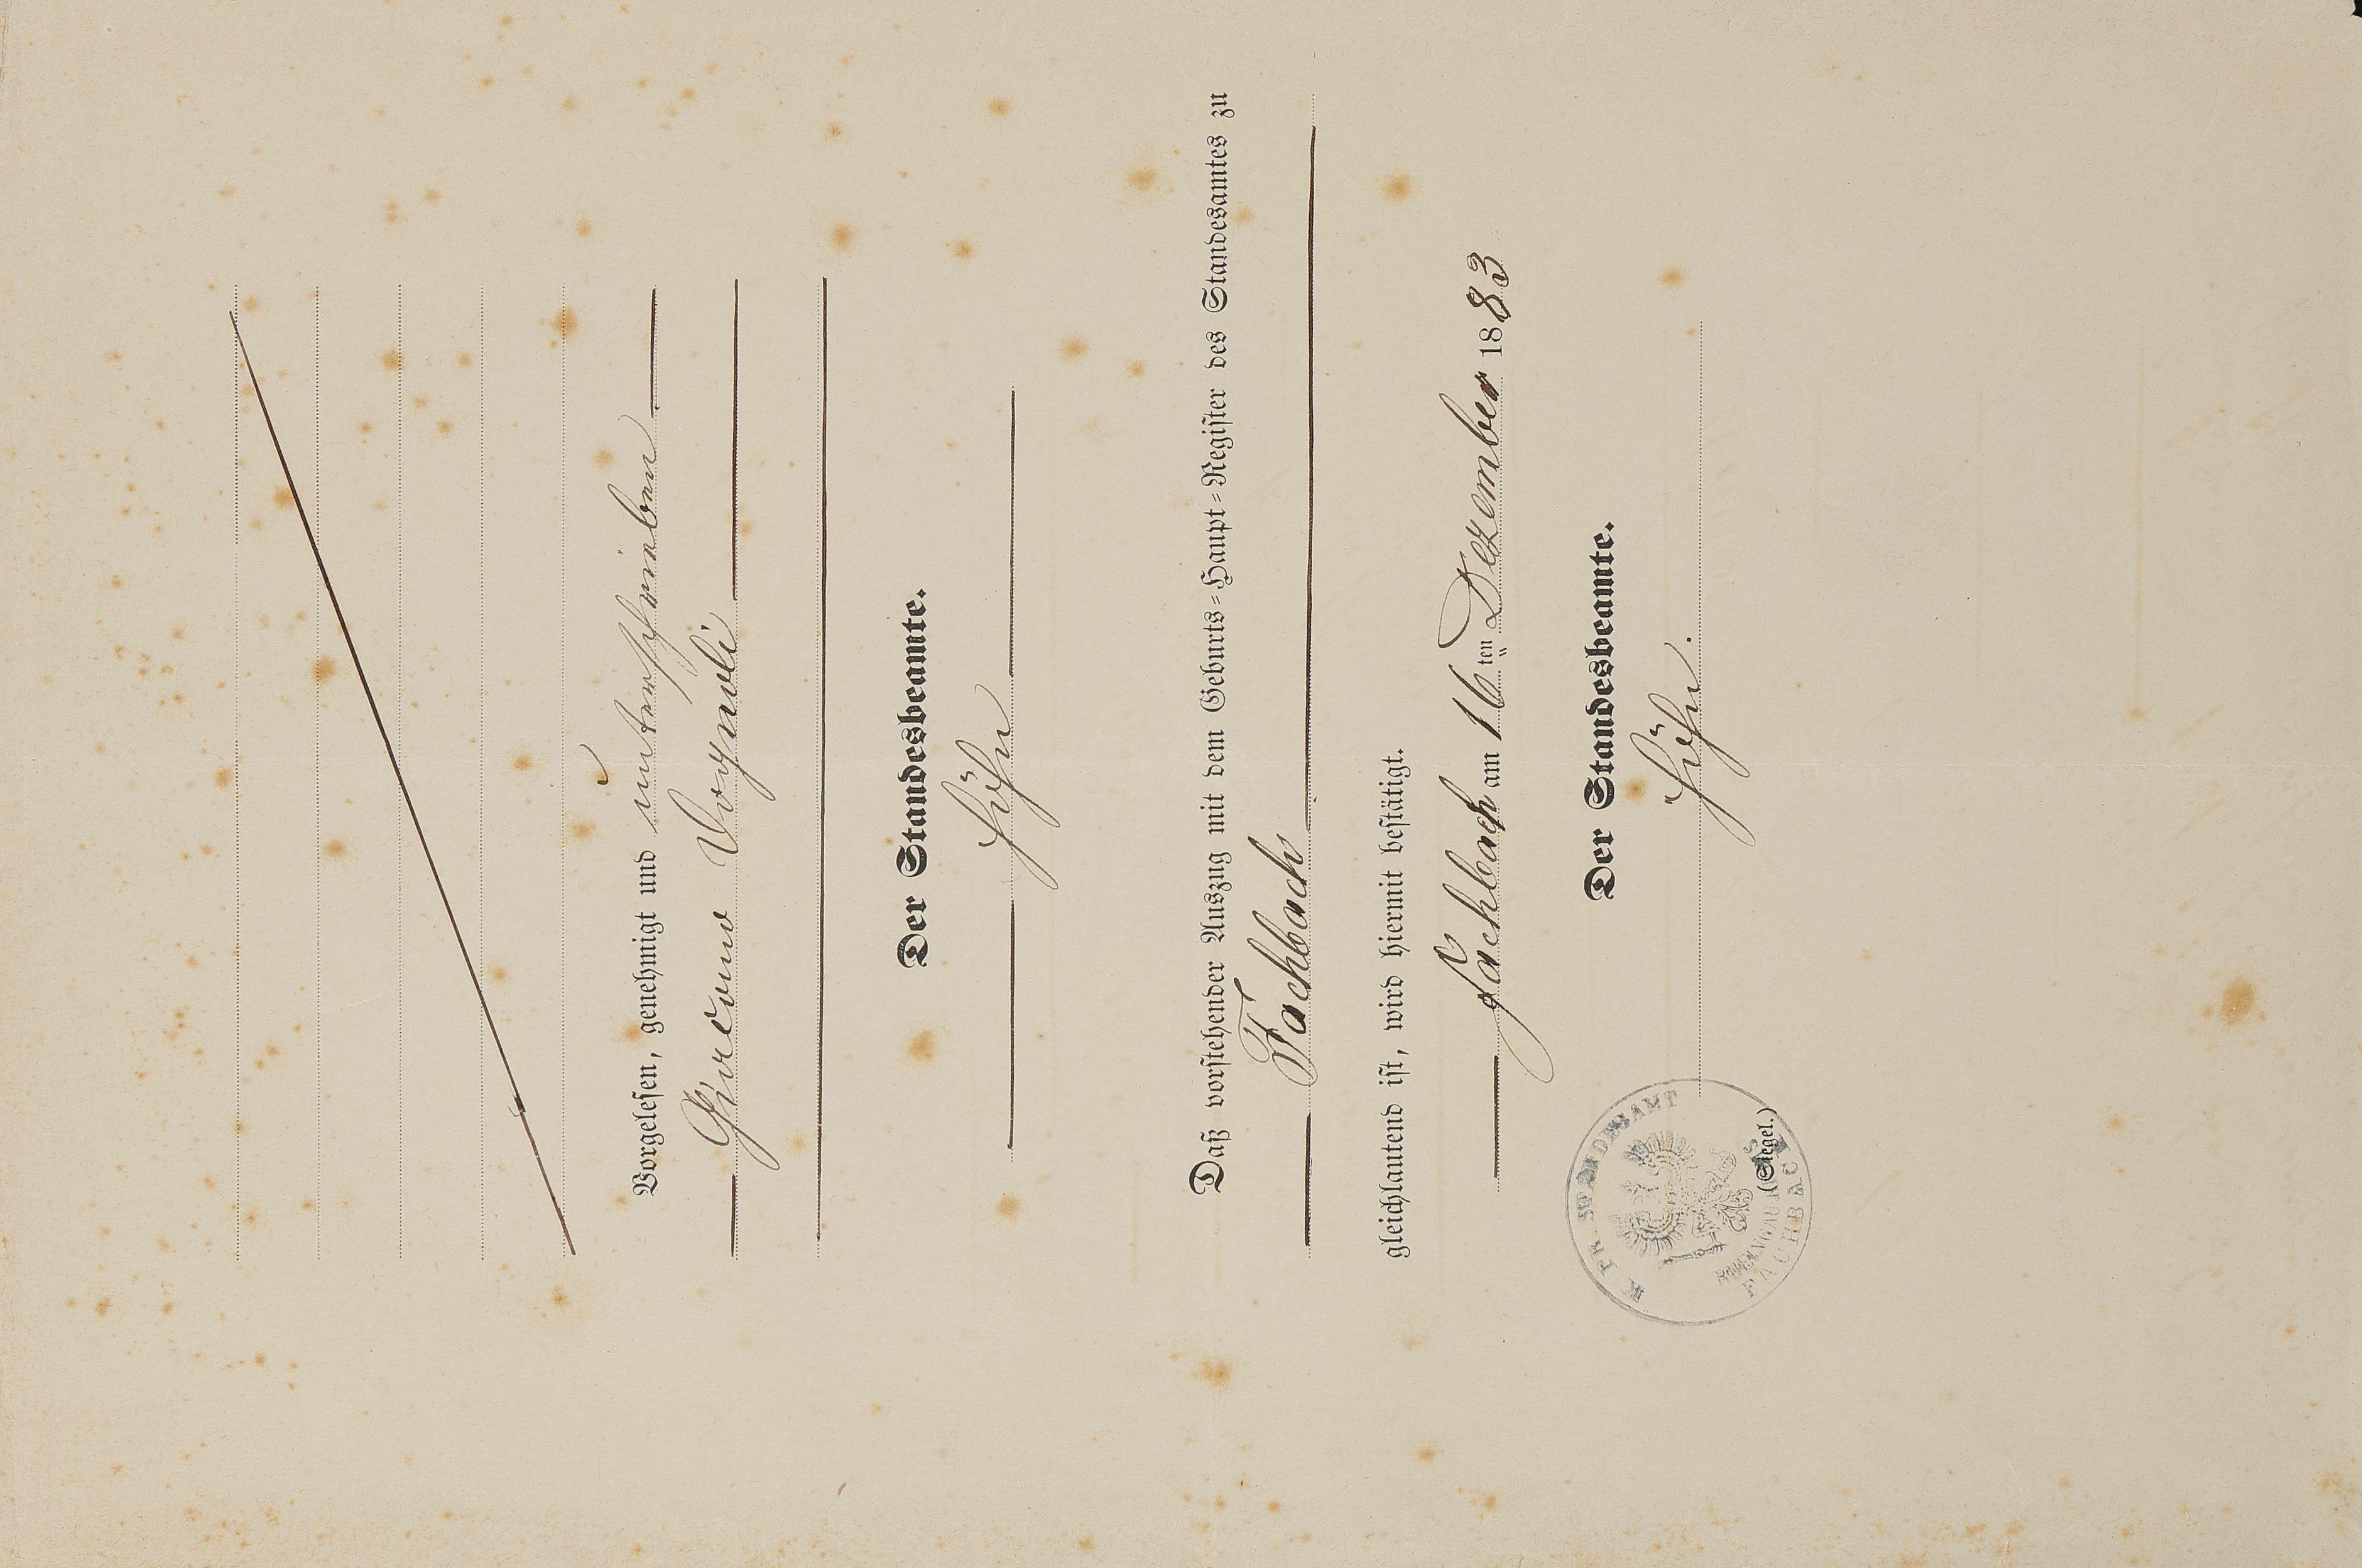 Vorgelesen, genehmigt und unterschrieben
Giacomo
Der Standesbeamte.
Höhn
Daß vorstehender Auszug mit dem Geburts=Haupt=Register des Standesamtes zu
Fachbach
gleichlautend ist, wird hiermit bestätigt.
Fachbach am 16ten Dezember 1883
Der Standesbeamte.
Höhn.
(Siegel.)
K. PR. STANDESAMT
FACHBACH